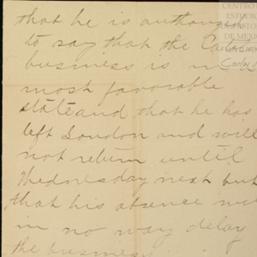 that he is authorized
to say that the
business is in
most favorable
state and that he has
left London and will
not return until
Wednesday next but
that his absence will
in no way delay
the business
CENTRO
ESTUDIOS
HISTORIA
DE MEXICO
Carlos